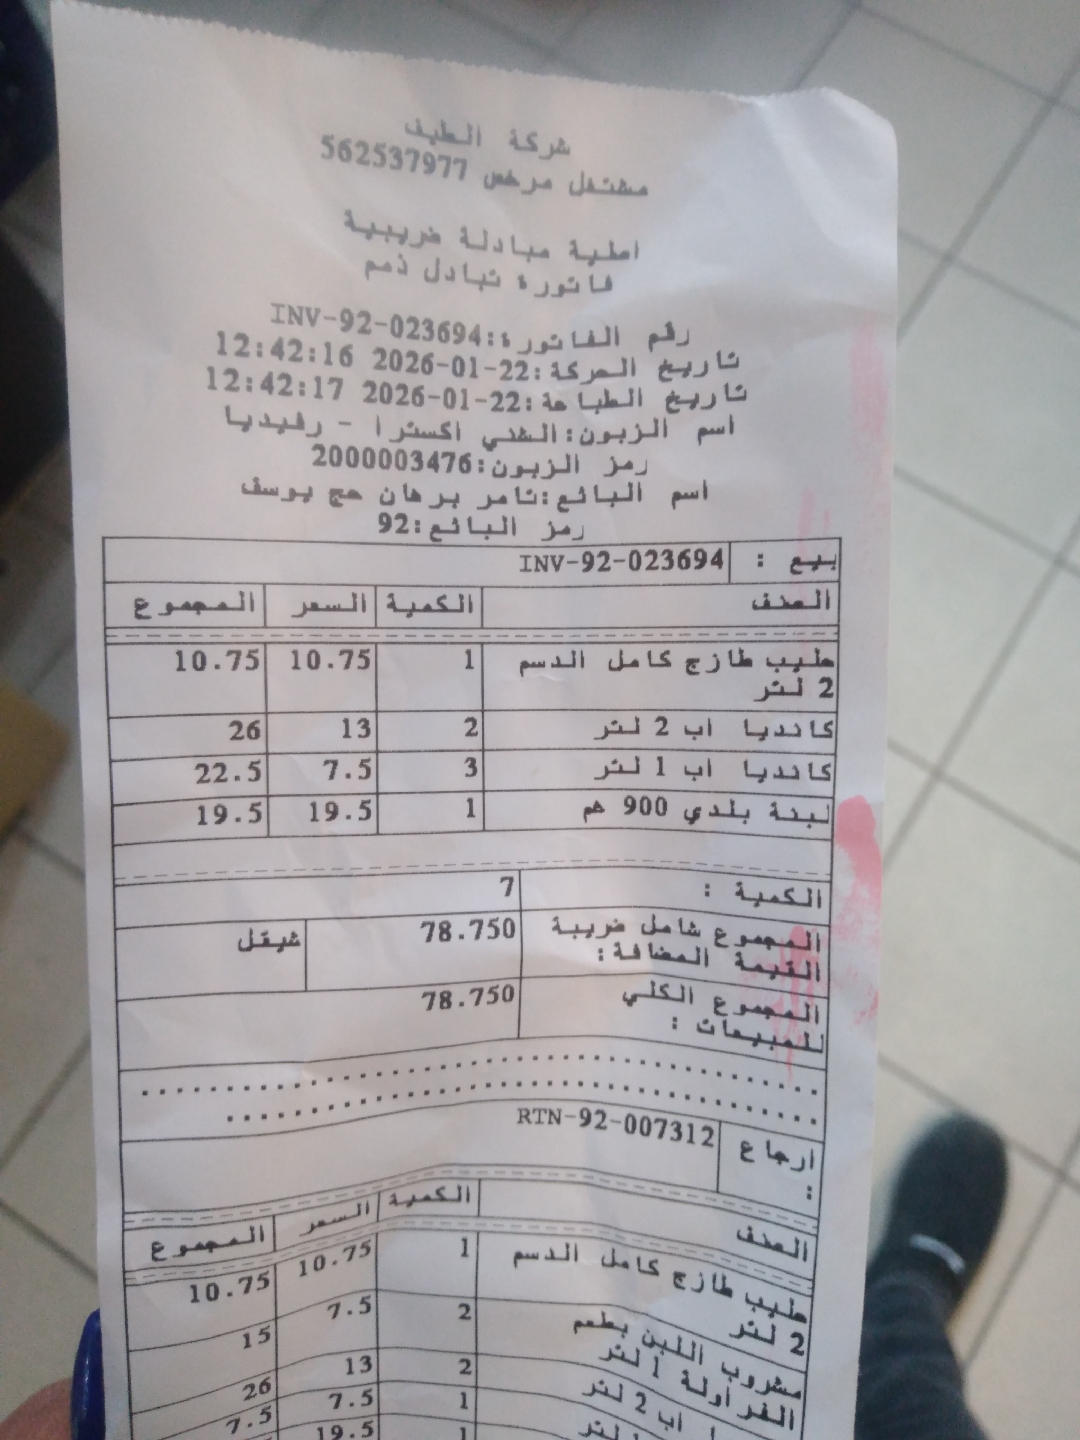 شركة الطيف
مشتغل مرخص 562537977
اصلية مبادلة ضريبية
فاتورة تبادل ذمم
رقم الفاتورة:INV-92-023694
تاريخ الحركة:22-01-2026 12:42:16
تاريخ الطباعة:22-01-2026 12:42:17
اسم الزبون:الشني اكسترا - رفيديا
رمز الزبون:2000003476
اسم البائع:تامر برهان حج يوسف
رمز البائع:92
بيع : INV-92-023694
الصنف الكمية السعر المجموع
حليب طازج كامل الدسم 1 10.75 10.75
2 لتر
كانديا اب 2 لتر 2 13 26
كانديا اب 1 لتر 3 7.5 22.5
لبنة بلدي 900 غم 1 19.5 19.5
الكمية : 7
المجموع شامل ضريبة 78.750 شيقل
القيمة المضافة:
المجموع الكلي 78.750
للمبيعات :
ارجاع RTN-92-007312
:
الصنف الكمية السعر المجموع
حليب طازج كامل الدسم 1 10.75 10.75
2 لتر
مشروب اللبن بطعم 2 7.5 15
الفراولة 1 لتر
اب 2 لتر 2 13 26
لتر 1 7.5 7.5
1 19.5